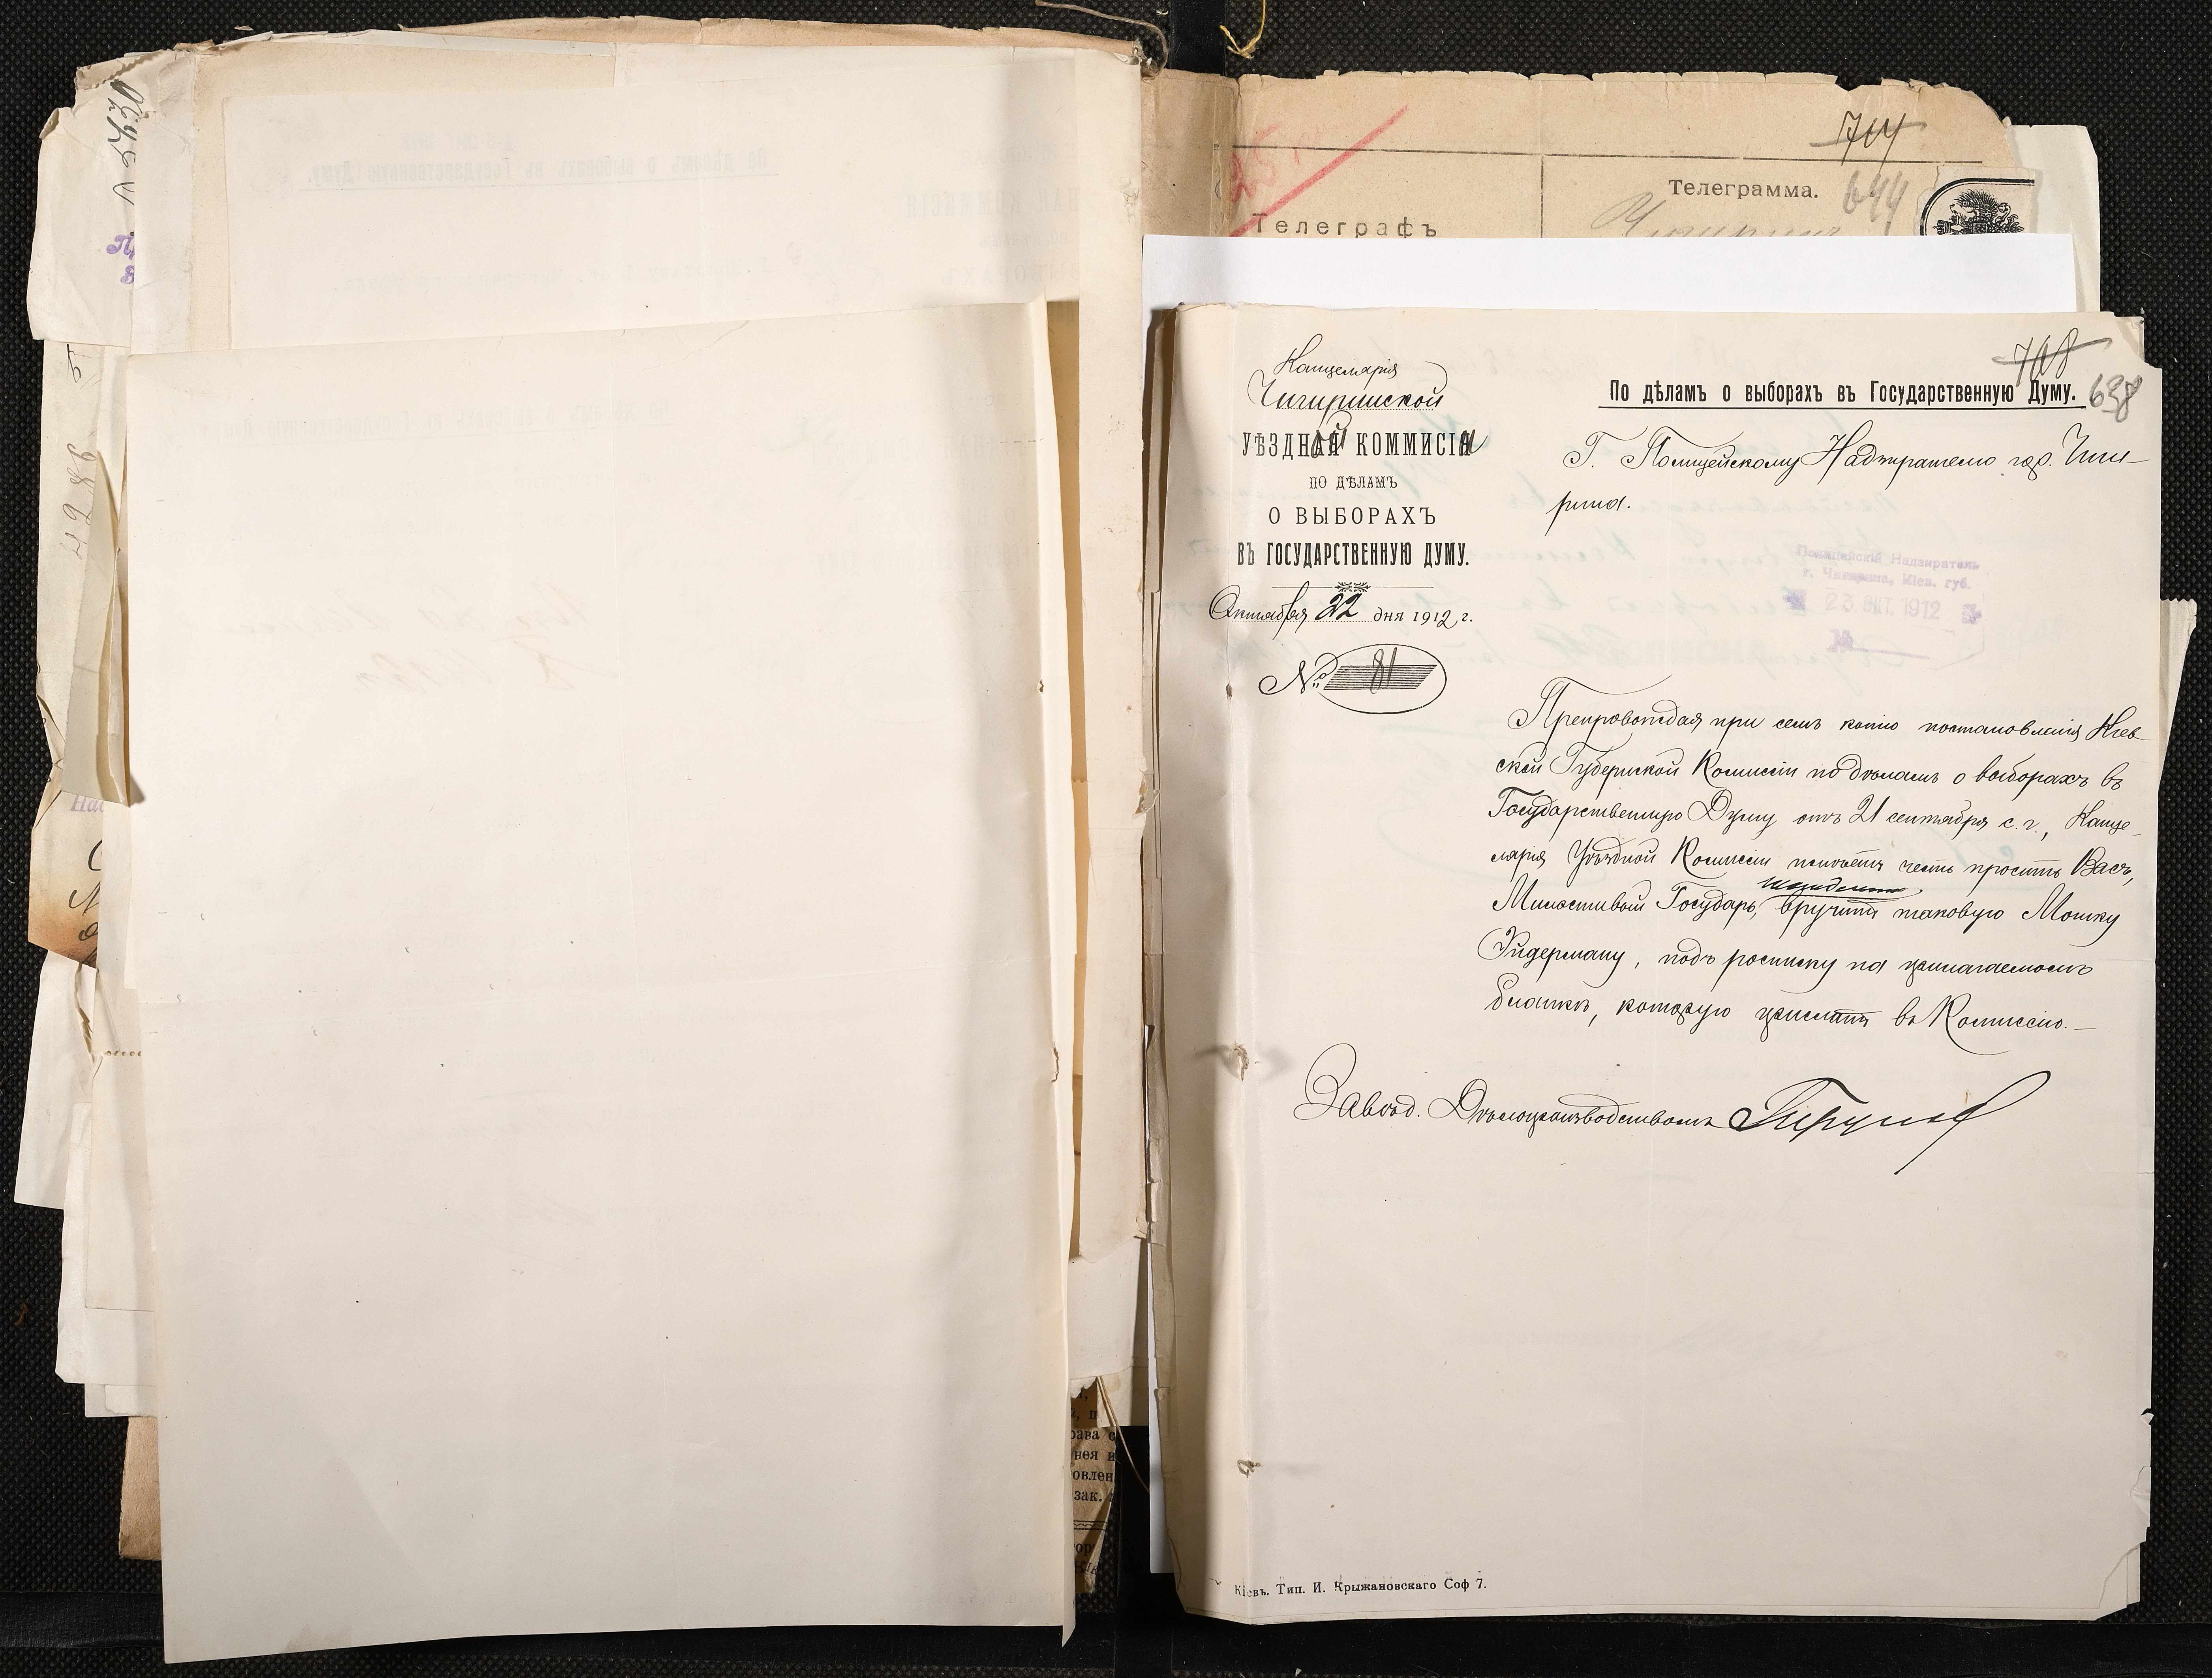 704
Телеграмма.
644
Телеграфъ
708
638
Канцелярія
Чигиринской
УѢЗДНОЙ КОММИСІИ
ПО ДѢЛАМЪ
О ВЫБОРАХЪ
ВЪ ГОСУДАРСТВЕННУЮ ДУМУ.
Октября 22 дня 1912 г.
№ 81
По дѣламъ о выборахъ въ Государственную Думу.
Г. Полицейскому Надзирателю гор. Чиги-
рина.
Полицейскій Надзиратель
г. Чигирина, Кіев. губ.
23 ОКТ. 1912
№
Препровождая при семъ копію постановленія Кіев-
ской Губернской Комиссіи по дѣламъ о выборахъ въ
Государственную Думу отъ 21 сентября с. г., Канце-
лярія Уѣздной Комиссіи имѣетъ честь просить Васъ,
Милостивый Государь, вручить таковую Мошку
Эйдерману, подъ росписку на прилагаемомъ
бланкѣ, которую прислать въ Комиссію.—
Завѣд. Дѣлопроизводствомъ
Кіевъ. Тип. И. Крыжановскаго Соф 7.